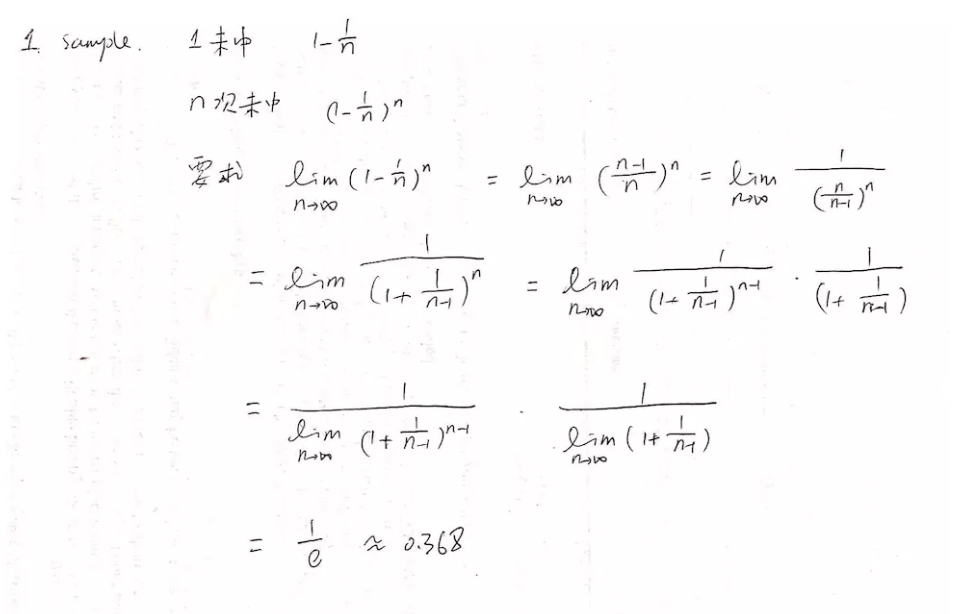 1. sample. 1未中 1-1/n
n次未中 (1-1/n)^n
要求 lim_{n→∞} (1-1/n)^n = lim_{n→∞} ((n-1)/n)^n = lim_{n→∞} 1/(n/(n-1))^n
= lim_{n→∞} 1/(1+1/(n-1))^n = lim_{n→∞} 1/(1+1/(n-1))^{n-1} · 1/(1+1/(n-1))
= 1/(lim_{n→∞} (1+1/(n-1))^{n-1}) · 1/(lim_{n→∞} (1+1/(n-1)))
= 1/e ≈ 0.368